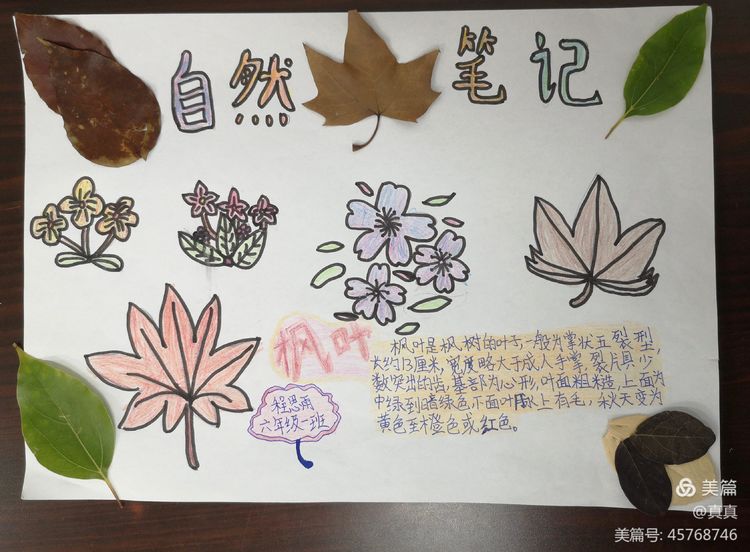 自然笔记
枫叶
枫叶是枫树的叶子,一般为掌状五裂型,
长约13厘米,宽度略大于成人手掌,裂片具少
数突出的齿,基部为心形,叶面粗糙,上面为
中绿到暗绿色,下面叶脉上有毛,秋天变为
黄色至橙色或红色。
程思雨
六年级一班
美篇
@真真
美篇号: 45768746